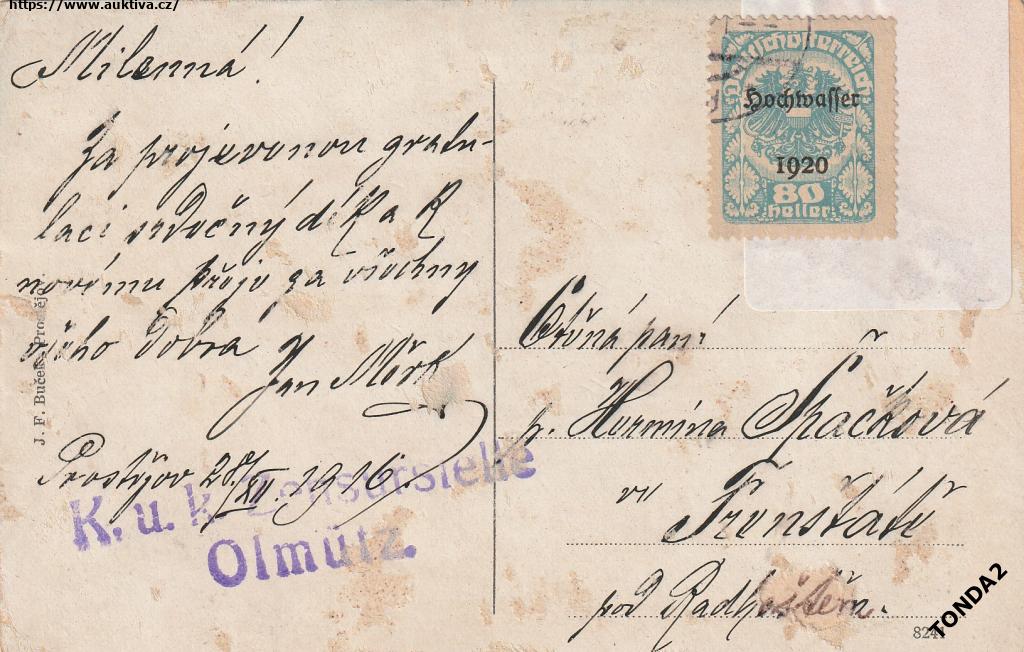 https://www.auktiva.cz/
Milenná!
Za projevenou gratu-
laci srdečný dík a k
novému přeje za všechny
všeho dobra
Jan
Prostějov 28/XII. 1916.
K. u. k. Zensurstelle
Olmütz.
J. F. Buček, Prostějov.
Deutschösterreich
Hochwasser
1920
80
Heller
Ctěná paní
p. Hermína Špačková
ve
Frenštátě
pod Radhoštěm.
824
TONDA2